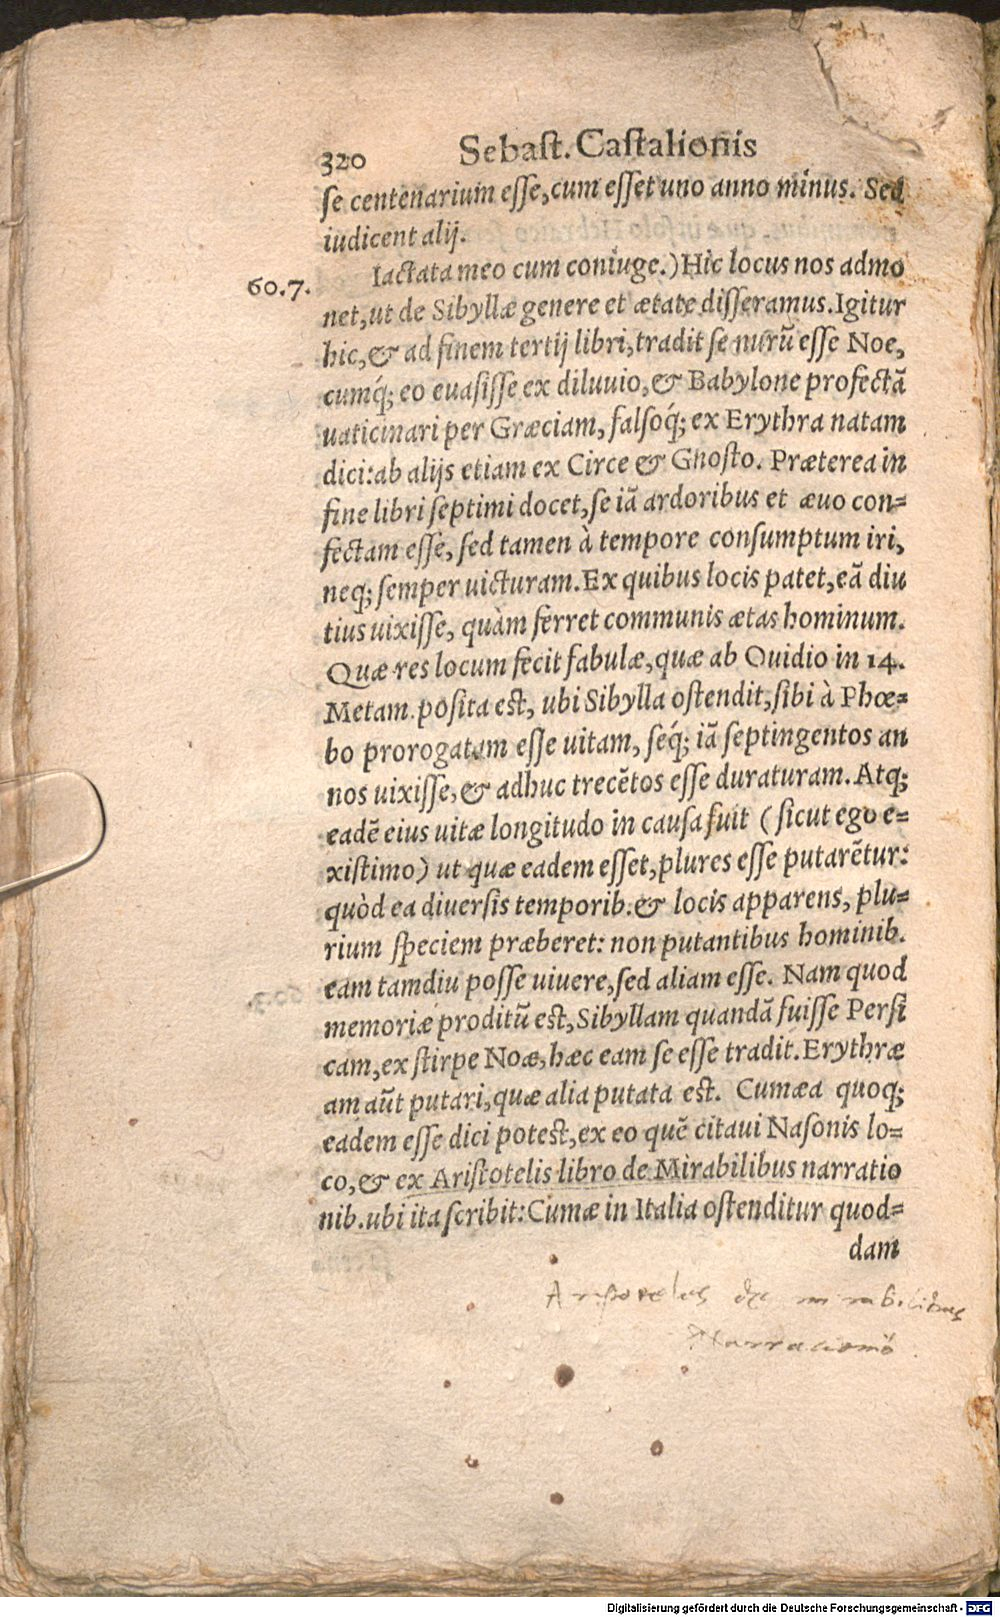 320 Sebaſt. Caſtalionis
ſe centenarium eſſe, cum eſſet uno anno minus. Sed
iudicent alij.
60.7. Iactata meo cum coniuge.) Hic locus nos admo
net, ut de Sibyllæ genere et ætate diſſeramus. Igitur
hic, & ad finem tertij libri, tradit ſe nurū eſſe Noe,
cumq́; eo euaſiſſe ex diluuio, & Babylone profectā
uaticinari per Græciam, falſoq́; ex Erythra natam
dici: ab alijs etiam ex Circe & Gnoſto. Præterea in
fine libri ſeptimi docet, ſe iā ardoribus et æuo con=
fectam eſſe, ſed tamen à tempore conſumptum iri,
neq; ſemper uicturam. Ex quibus locis patet, eā diu
tius uixiſſe, quàm ferret communis ætas hominum.
Quæ res locum fecit fabulæ, quæ ab Ouidio in 14.
Metam. poſita eſt, ubi Sibylla oſtendit, ſibi à Phœ=
bo prorogatam eſſe uitam, ſeq́; iā ſeptingentos an
nos uixiſſe, & adhuc trecētos eſſe duraturam. Atq;
eadē eius uitæ longitudo in cauſa fuit (ſicut ego e=
xiſtimo) ut quæ eadem eſſet, plures eſſe putarētur:
quòd ea diuerſis temporib. & locis apparens, plu=
rium ſpeciem præberet: non putantibus hominib.
eam tamdiu poſſe uiuere, ſed aliam eſſe. Nam quod
memoriæ proditū eſt, Sibyllam quandā fuiſſe Perſi
cam, ex ſtirpe Noæ, hæc eam ſe eſſe tradit. Erythræ
am aūt putari, quæ alia putata eſt. Cumæa quoq;
eadem eſſe dici poteſt, ex eo quē citaui Naſonis lo=
co, & ex Ariſtotelis libro de Mirabilibus narratio
nib. ubi ita ſcribit: Cumæ in Italia oſtenditur quod=
dam
Aristoteles de mirabilibus
Narrationib
Digitalisierung gefördert durch die Deutsche Forschungsgemeinschaft - DFG